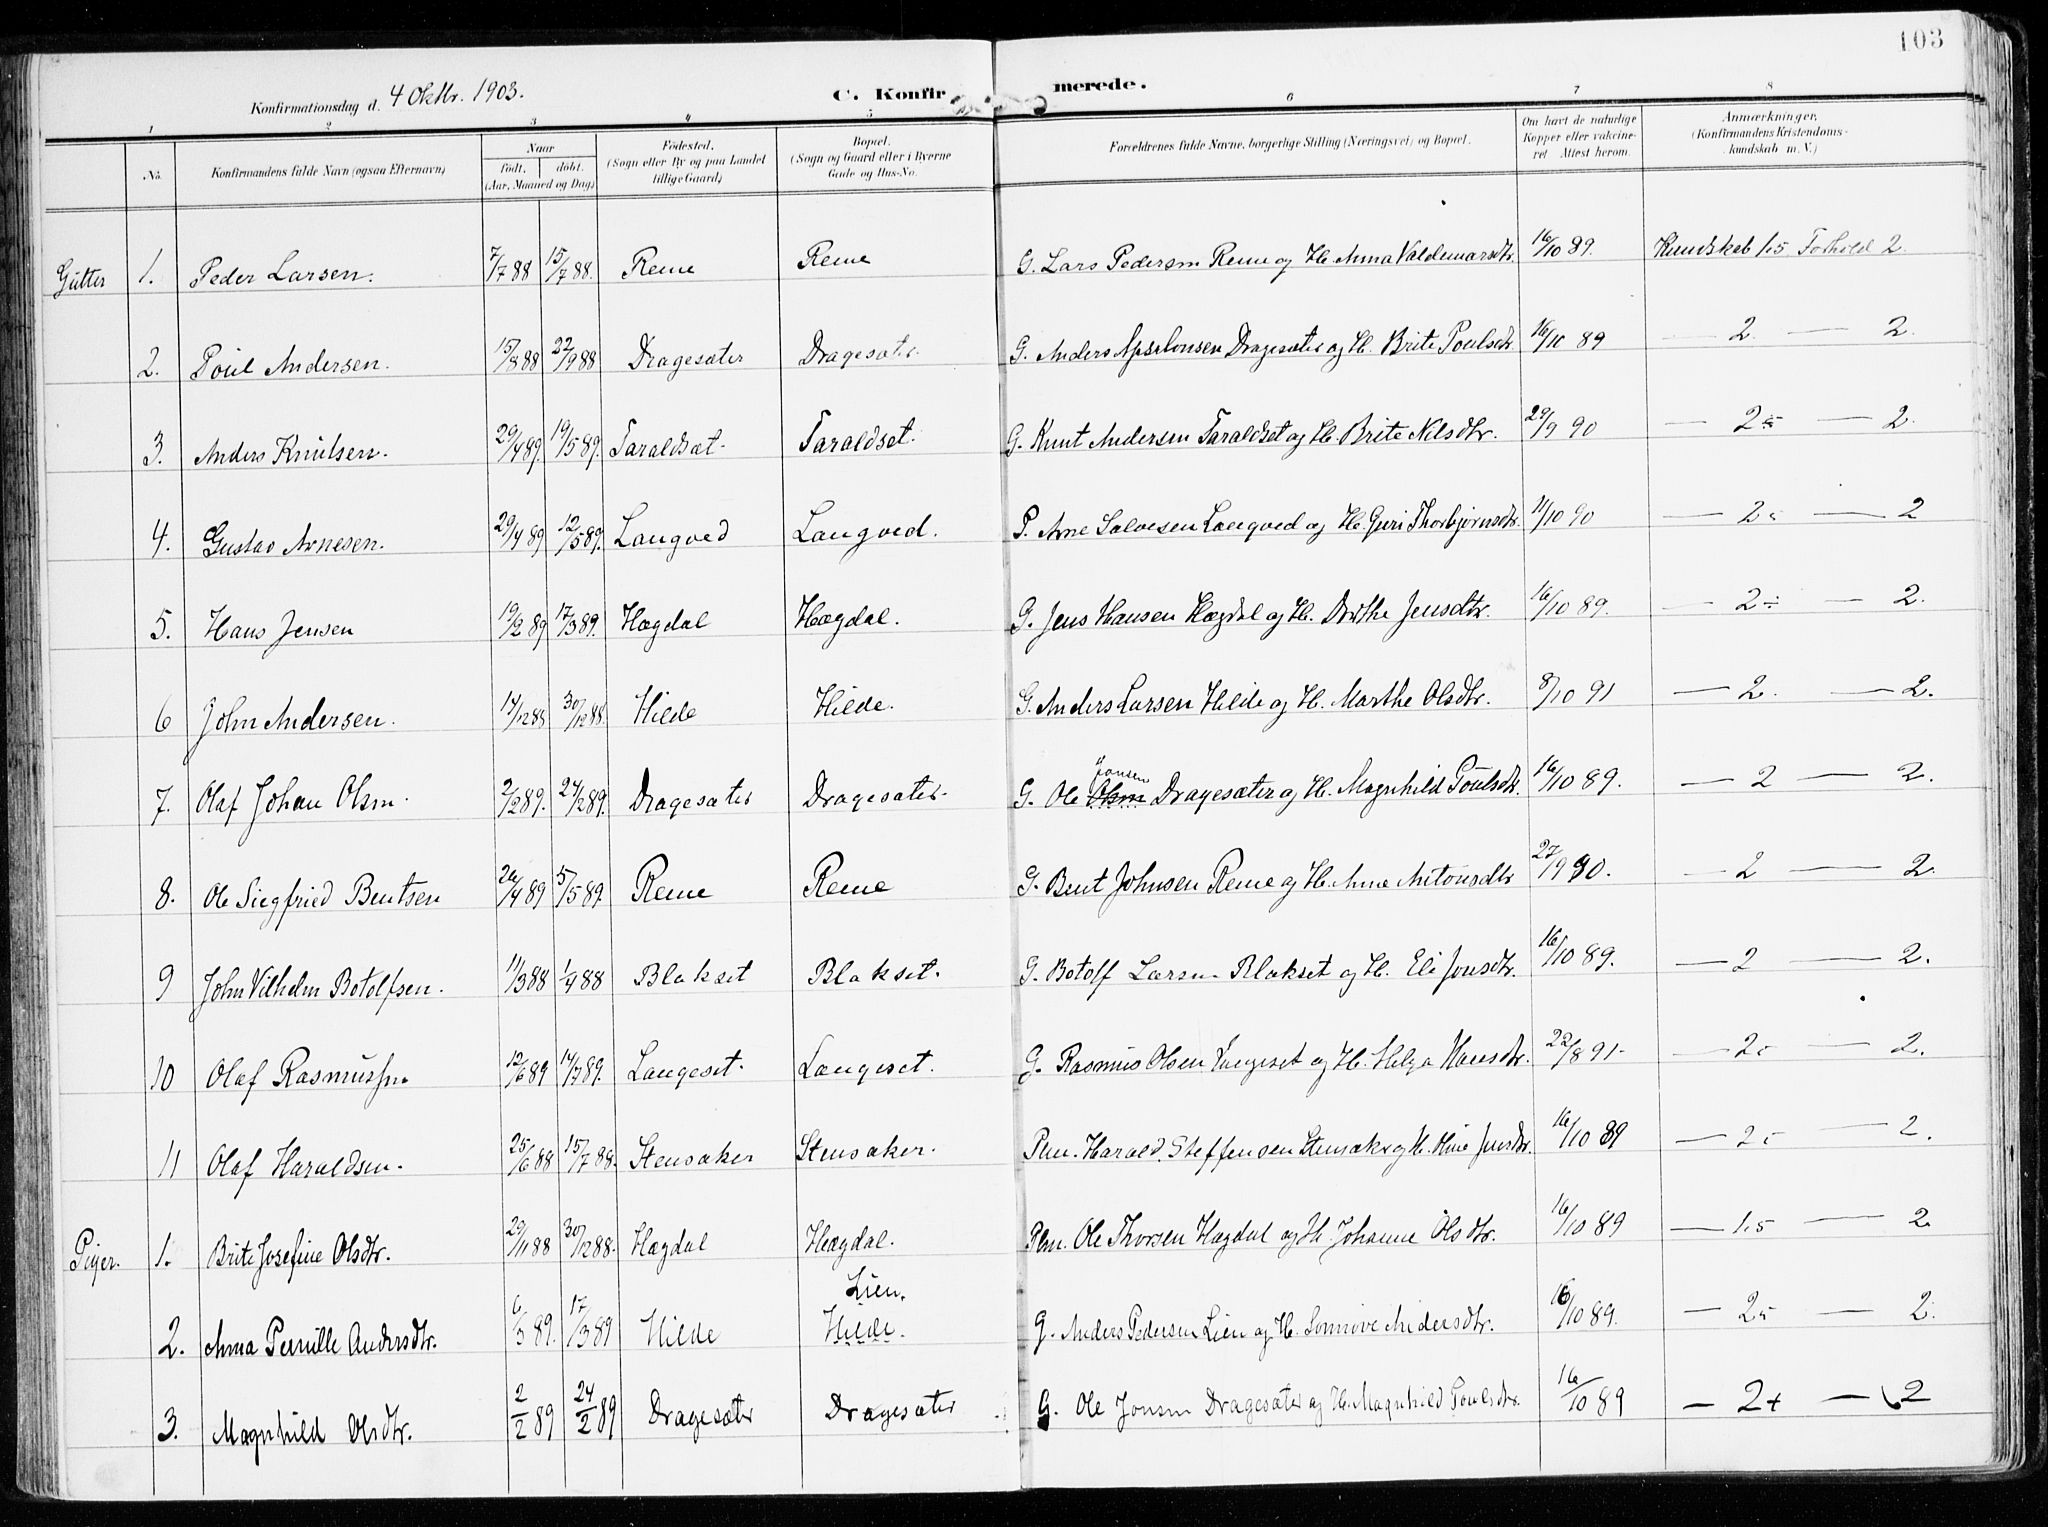 103
Konfirmationsdag d. 4 Oktbr. 1903.
C. Konfirmerede.
1 2 3 4 5 6 7 8
No.
Konfirmandens fulde Navn (ogsaa Efternavn)
Naar
født. døbt.
(Aar, Maaned og Dag)
Fødested.
(Sogn eller By og paa Landet
tillige Gaard)
Bopæl.
(Sogn og Gaard eller i Byerne
Gade og Hus-No.
Forældrenes fulde Navne, borgerlige Stilling (Næringsvei) og Bopæl.
Om havt de naturlige
Kopper eller vakcine-
ret Attest herom.
Anmærkninger.
(Konfirmandens Kristendoms-
kundskab m. V.)
Gutter 1. Peder Larsen. 7/7 88 15/7 88. Reme Reme G. Lars Pedersen Reme og H. Anna Valdemarsdtr. 16/10 89. Kundskab 1.5 Forhold 2.
2. Poul Andersen. 15/8 88 22/9 88 Dragesæter Dragesæter. G. Anders Apsalonsen Dragesæter og H. Brite Poulsdtr. 16/10 89 — 2. — 2.
3. Anders Knutsen. 29/4 89. 19/5 89. Taraldset. Taraldset. G. Knut Andersen Taraldset og H. Brite Nilsdtr. 29/9 90 — 2 — 2.
4. Gustav Arnesen. 29/4 89 12/5 89. Langved Langved. P. Arne Salvesen Langved og H. Guri Thorbjørnsdtr. 11/10 90 — 2 — 2
5. Hans Jensen 19/2 89 17/3 89. Hægdal Hægdal. G. Jens Hansen Hægdal og H. Dorthe Jensdtr. 16/10 89. — 2 — 2.
6 John Andersen. 14/12 88 30/12 88. Hilde Hilde. G. Anders Larsen Hilde og H. Marthe Olsdtr. 8/10 91 — 2. — 2.
7. Olaf Johan Olsen. 2/2 89. 24/2 89. Dragesæter Dragesæter. G. Ole Olsen Jonsen Dragesæter og H. Magnhild Poulsdtr. 16/10 89. — 2 — 2.
8. Ole Siegfried Bentsen /4 89 5/5 89. Reme Reme G. Bent Johnsen Reme og H. Anne Antonsdtr 27/9 90. — 2 — 2.
9 John Vilhelm Botolfsen. 11/3 88 1/4 88 Blakset Blakset. G. Botolf Larsen Blakset og H. Eli Jonsdtr. 16/10 89. — 2 — 2.
10 Olaf Rasmussen 12/6 89 14/7 89. Langeset. Langeset. G. Rasmus Olsen Langeset og H. Helga Hansdtr. 22/8 91. — 2 — 2.
11 Olaf Haraldsen. 25/6 88 15/7 88. Stensaker Stensaker. Plm. Harald Steffensen Stensaker og H. Oline Jensdtr. 16/10 89 — 2 — 2.
Piger. 1. Brite Josefine Olsdtr. 29/11 88 30/12 88. Hægdal Hægdal. Plm. Ole Thorsen Hægdal og H. Johanne Olsdtr. 16/10 89 — 1.5 — 2.
2. Anna Pernille Andersdtr. 6/3 89. 17/3 89 Hilde Lien. Hilde. G. Anders Pedersen Lien og H. Sønnøve Andersdtr. 16/10 89. — 2 — 2.
3. Magnhild Olsdtr. 2/2 89 24/2 89 Dragesæter Dragesæter G. Ole Jonsen Dragesæter og H. Magnhild Poulsdtr. 16/10 89 — 2+ — 2